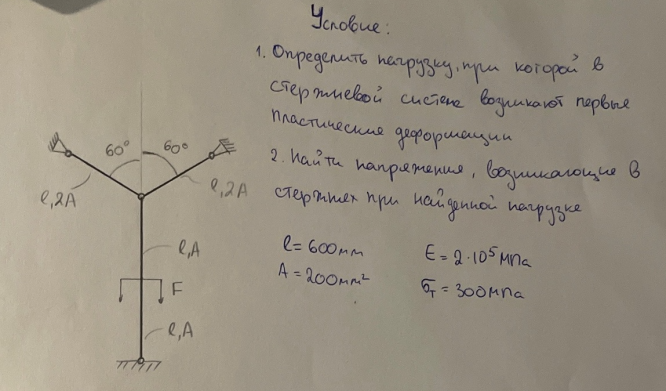 Условие:
1. Определить нагрузку, при которой в
стержневой системе возникают первые
пластические деформации
2. Найти напряжения, возникающие в
стержнях при найденной нагрузке
l = 600мм
E = 2·10⁵ МПа
A = 200мм²
σт = 300МПа
60° 60°
l, 2A
l, 2A
l, A
F
l, A